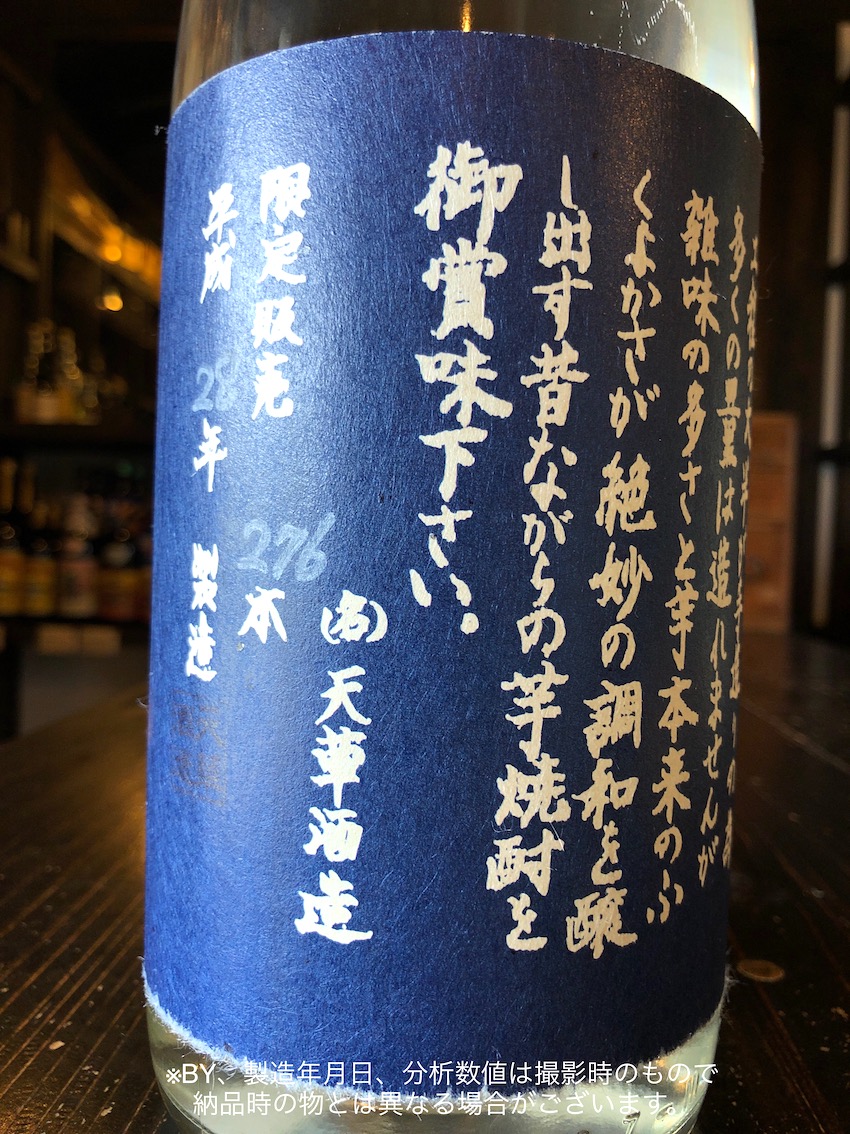 多くの量は造れませんが
雑味の多さと芋本来のふ
くよかさが絶妙の調和を醸
し出す昔ながらの芋焼酎を
御賞味下さい。
(名)天草酒造
限定販売 276本
平成 28年 製造
※BY、製造年月日、分析数値は撮影時のもので
納品時の物とは異なる場合がございます。